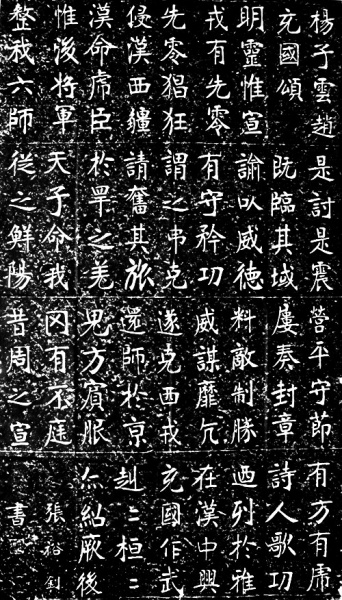 楊子雲趙
充國頌
明靈惟宣
戎有先零
先零猖狂
侵漢西疆
漢命虎臣
惟後將軍
整我六師
是討是震
既臨其域
諭以威德
有守矜功
謂之弗克
請奮其旅
於罕之羌
天子命我
從之鮮陽
營平守節
屢奏封章
料敵制勝
威謀靡亢
遂克西戎
還師於京
鬼方賓服
罔有不庭
昔周之宣
有方有虎
詩人歌功
迺列於雅
在漢中興
充國作武
赳〻桓〻
亦紹厥後
張裕釗
書